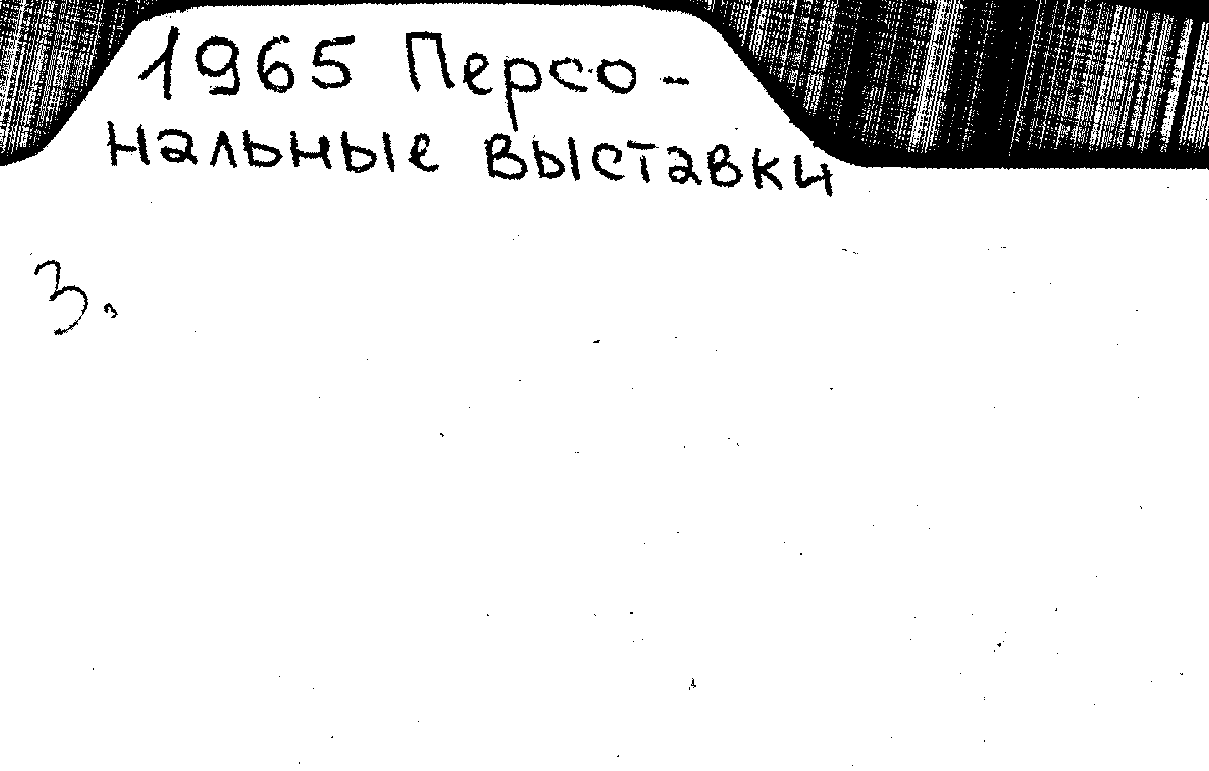 1965 Персо-
нальные выставки
3.